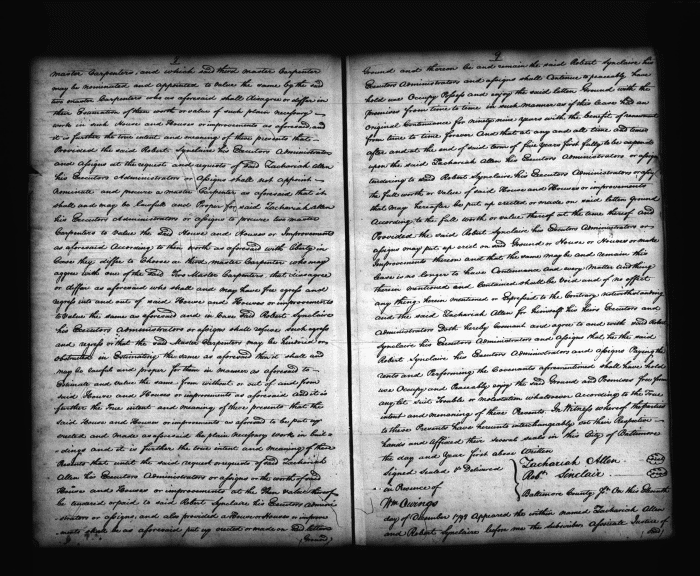 master Carpenters, and which said third master Carpenter
may be nominated and appointed to value the same by the said
two master Carpenters who as aforesaid shall disagree or differ in
their Estimation of their worth or value of such plain necessary
work in such House and Houses or improvements as aforesaid, and
it is further the true intent and meaning of these presents that
Provided the said Robert Synclaire his Executors Administrators
and assigns at the request and requests of said Zachariah Allen
his Executors Administrators or Assigns shall not appoint
nominate and procure a master Carpenter as aforesaid that it
shall and may be lawfull and Proper for said Zachariah Allen
his Executors Administrators or assigns to procure two master
Carpenters to Value the said House and Houses or Improvements
as aforesaid According to their worth as aforesaid with liberty in
Case they differ to Choose a third master Carpenter who may
agree with one of the said Two Master Carpenters that disagree
or differ as aforesaid who shall and may have free egress and
regress into and out of said House and Houses or improvements
to Value the same as aforesaid and in Case said Robert Synclaire
his Executors Administrators or assigns shall refuse such egress
and regress or that the said Master Carpenters may be hindered or
obstructed in Estimating the same as aforesaid that it shall and
may be lawful and proper for them in manner as aforesaid to
Estimate and value the same from without or out of and from
said House and Houses or improvements as aforesaid and it is
further the True intent and meaning of these presents that the
said House and Houses or improvements as aforesaid to be put up
erected and made as aforesaid be plain necessary work in buil
dings and it is further the true intent and meaning of these
Presents that untill the said request or requests of said Zachariah
Allen his Executors Administrators or assigns the worth of said
House and Houses or improvements at the Then Value thereof
be tendered or paid to said Robert Synclaire his Executors Admini
strators or assigns, and also provided a House or Houses or improve
ments shall be as aforesaid put up erected or made on said letten
(Ground)
Ground and thereon be and remain the said Robert Synclaire his
Executors Administrators and assigns shall Continue to peaceably have
hold use Occupy Possess and enjoy the said letten Ground with the
Premises from time to time in such manner as if this lease had an
original Continuance for ninety nine years with the benefit of renewment
from time to time forever And that at any and all time and times
after and at the end of said term of five years first fully to be expended
upon the said Zachariah Allen his Executors Administrators or assigns
tendering to said Robert Synclaire his Executors Administrators or assigns
the full worth or value of said House and Houses or improvements
that may hereafter be put up erected or made on said letten Ground
According to the full worth or value thereof at the time thereof and
Provided the said Robert Synclaire his Executors Administrators or
assigns may put up erect on said Ground or House or Houses or make
improvements thereon and that the same may be and remain this
lease is no longer to have Continuance and every Matter and thing
therein mentioned and Contained shall be Void and of no effect
any thing herein mentioned or Expressed to the Contrary notwithstanding
and the said Zachariah Allen for himself his heirs Executors and
Administrators Doth hereby Covenant and agree to and with said Robert
Synclaire his Executors Administrators and Assigns that he the said
Robert Synclaire his Executors Administrators and assigns Paying the
rents and Performing the Covenants aforementioned shall have hold
use Occupy and Peaceably enjoy the said Ground and Premises free from
any let suit Trouble or Molestation whatsoever According to the True
intent and meaning of these Presents. In Witness whereof the parties
to these Presents have hereunto interchangeably set their Respective
hands and affixed their several seals in this City of Baltimore
the day and year first above Written
Signed Sealed & Delivered
in Presence of
Wm Owings
Zachariah Allen
Robt Sinclair
Baltimore County Ss. On this Eleventh
day of December 1799 Appeared the within named Zachariah Allen
and Robert Synclaire before me the subscriber Associate Justice of